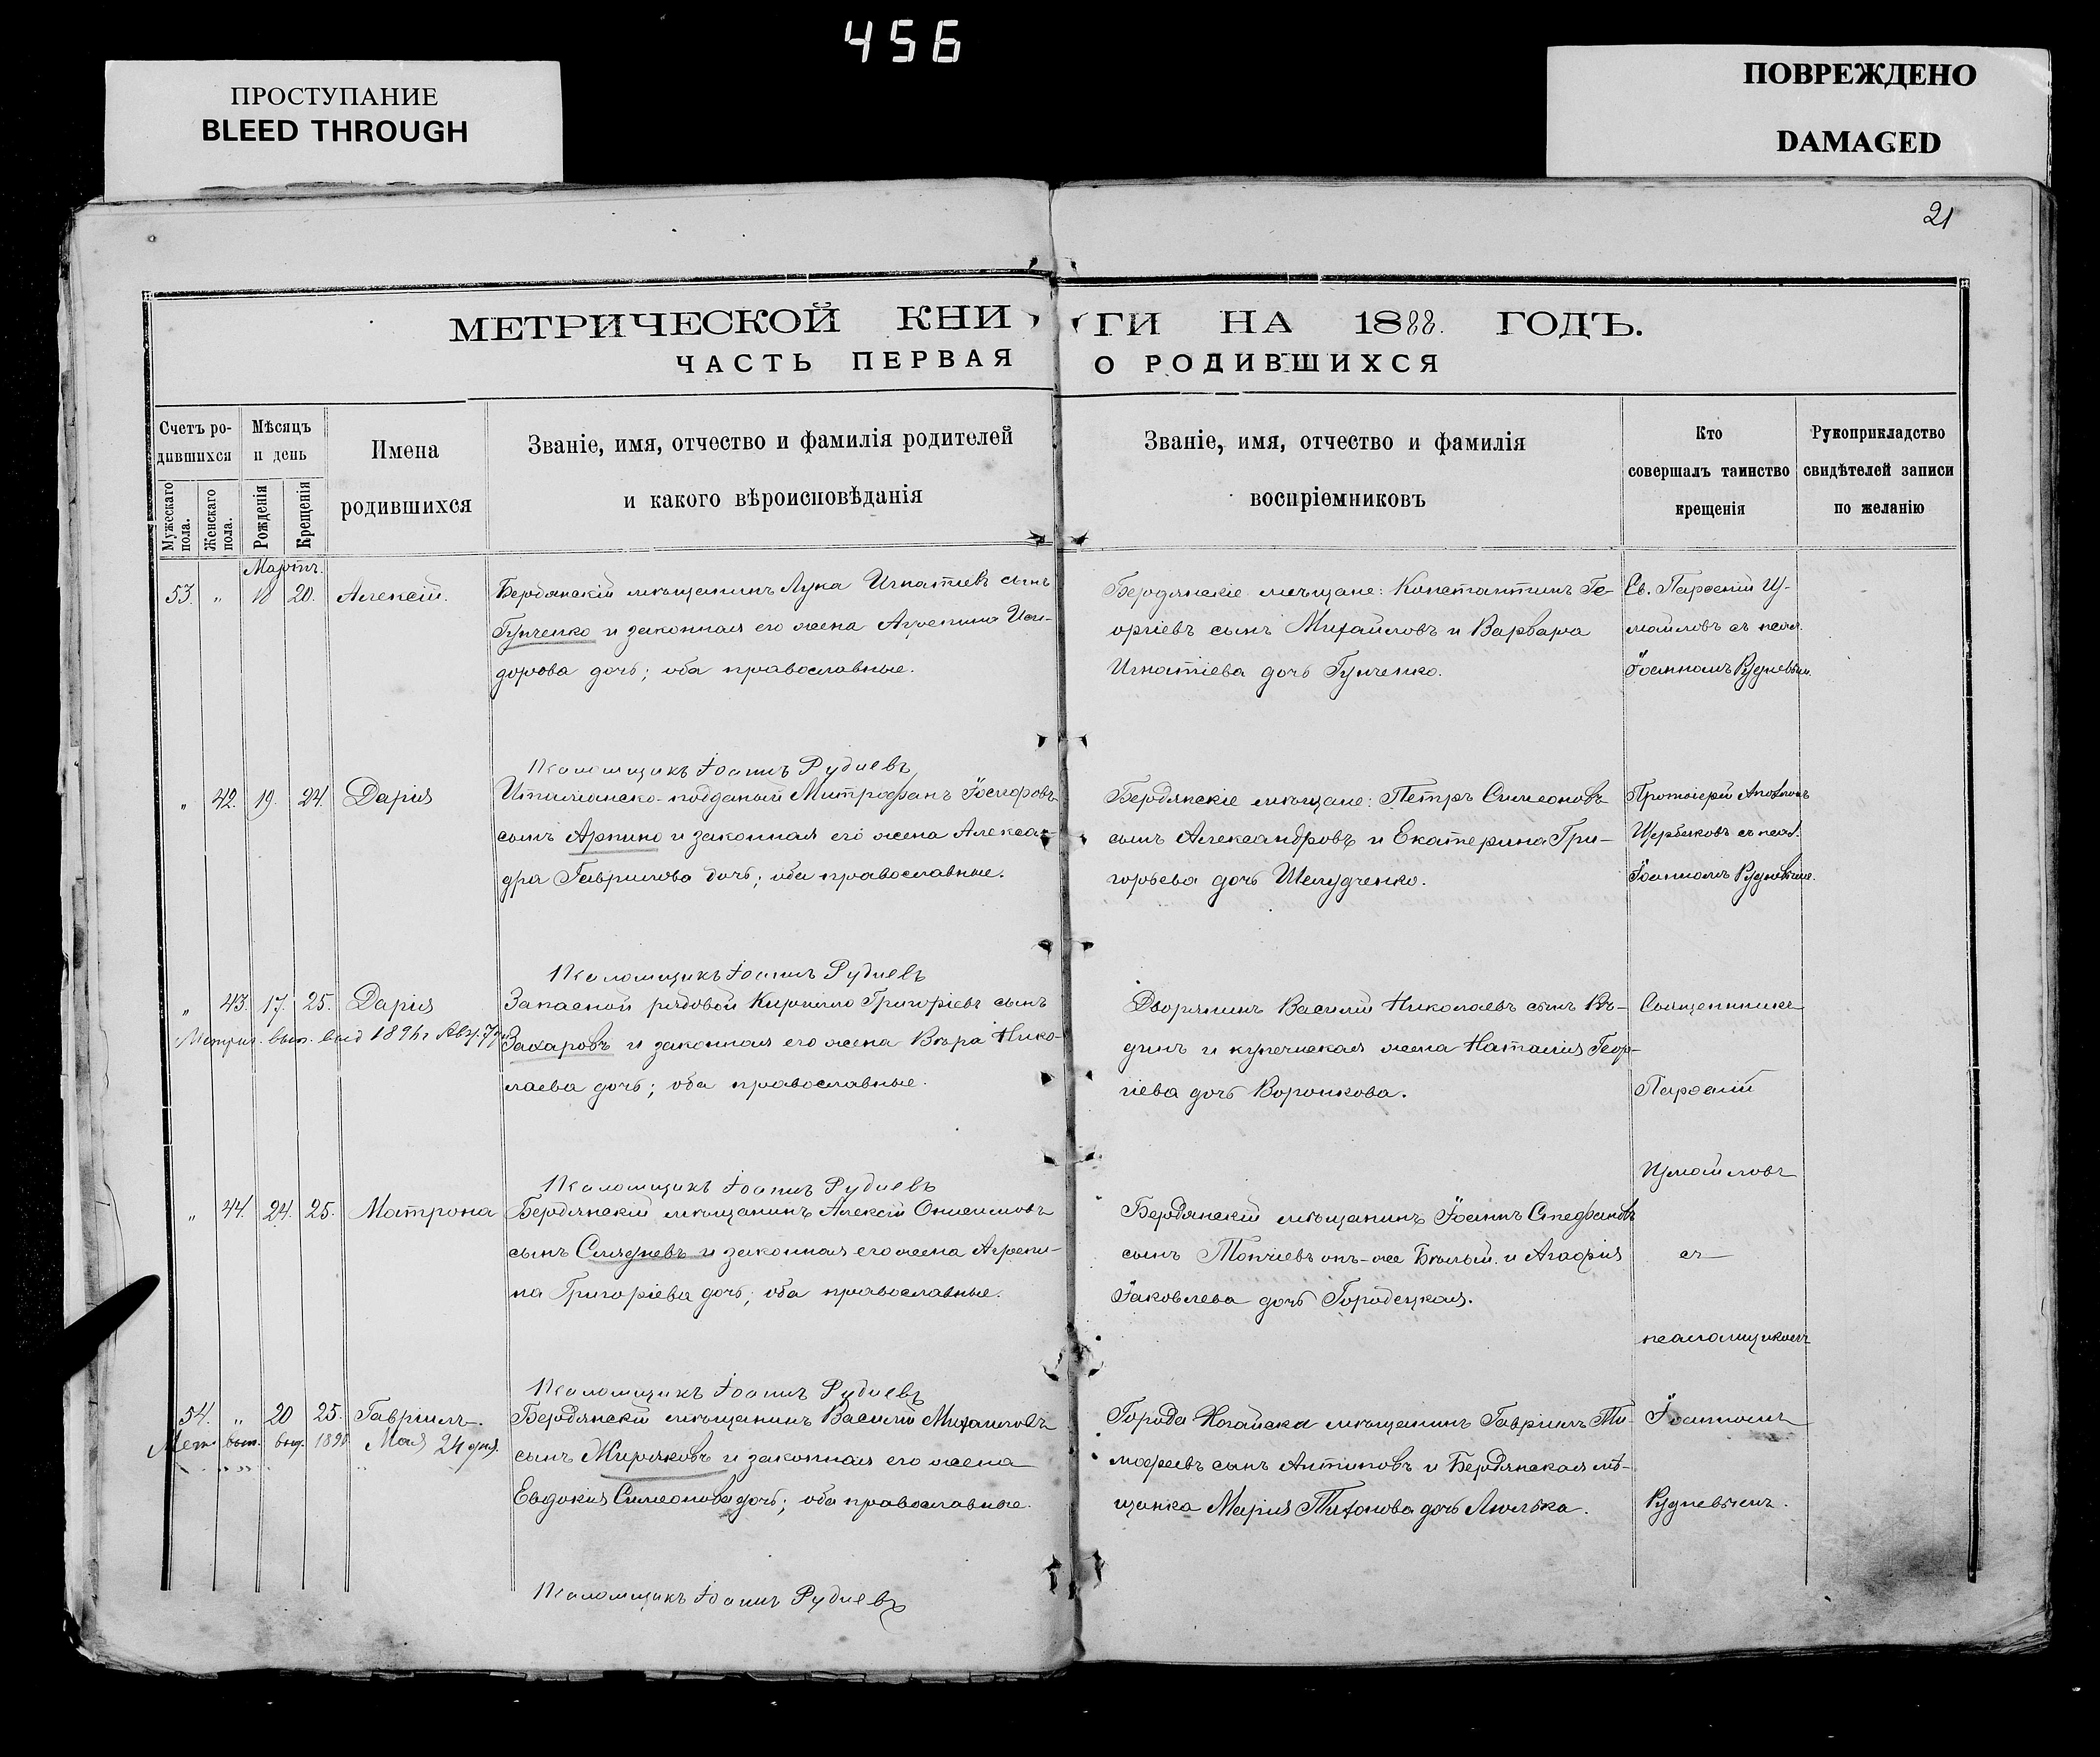 456
ПРОСТУПАНИЕ
BLEED THROUGH
ПОВРЕЖДЕНО
DAMAGED
21
МЕТРИЧЕСКОЙ КНИГИ НА 1888. ГОДЪ.
ЧАСТЬ ПЕРВАЯ О РОДИВШИХСЯ
Счетъ ро-
дившихся
Мужескаго пола.
Женскаго пола.
Мѣсяцъ
и день
Рожденія
Крещенія
Имена
родившихся
Званіе, имя, отчество и фамилія родителей
и какого вѣроисповѣданія
Званіе, имя, отчество и фамилія
воспріемниковъ
Кто
совершалъ таинство
крещенія
Рукоприкладство
свидѣтелей записи
по желанію
Мартъ.
53. „ 18 20. Алексій.
Бердянскій мѣщанинъ Лука Игнатіевъ сынъ
Гунченко и законная его жена Агрепина Иси-
дорова дочь; оба православные.
Бердянскіе мѣщане: Константинъ Ге-
оргіевъ сынъ Михайловъ и Варвара
Игнатіева дочь Гунченко.
Св. Парѳеній Из-
маиловъ съ псал.
Іоанномъ Рудневымъ.
Псаломщикъ Іоаннъ Рудневъ
„ 42. 19. 24. Дарія
Италіанско-подданый Митрофанъ Іосифовъ
сынъ Арпино и законная его жена Алексан-
дра Гаврилова дочь; оба православные.
Бердянскіе мѣщане: Петръ Симеоновъ
сынъ Александровъ и Екатерина Гри-
горьева дочь Шелудченко.
Протоіерей
Щербаковъ съ псал.
Іоанномъ Рудневымъ.
Псаломщикъ Іоаннъ Рудневъ
„ 43. 17. 25. Дарія
Метрич. вып. выд
Запасной рядовой Кирилло Григоріевъ сынъ
Захаровъ и законная его жена Вѣра Нико-
лаева дочь; оба православные.
Дворянинъ Василій Николаевъ сынъ Вѣ-
динъ и купеческая жена Наталія Геор-
гіева дочь Воронкова.
Священникъ
Парѳеній
Измаиловъ
Псаломщикъ Іоаннъ Рудневъ
„ 44. 24. 25. Матрона
Бердянскій мѣщанинъ Алексій Онисимовъ
сынъ и законная его жена Агрепи-
на Григоріева дочь; оба православные.
Бердянскій мѣщанинъ Іоаннъ Стефановъ
сынъ Топчіевъ онъ-же Бѣлый. и Агафія
Іаковлева дочь Городецкая.
съ
псаломщикомъ
Псаломщикъ Іоаннъ Рудневъ
54. „ 20 25. Гавріилъ.
Мет. вып. выд. Мая 24 дня.
Бердянскій мѣщанинъ Василій Михаиловъ
сынъ Жиряковъ и законная его жена
Евдокія Симеонова дочь; оба православные.
Города Ногайска мѣщанинъ Гавріилъ Ти-
мофеевъ сынъ Антиповъ и Бердянская мѣ-
щанка Марія Тихонова дочь Люлька.
Іоанномъ
Рудневымъ.
Псаломщикъ Іоаннъ Рудневъ